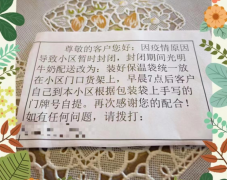 尊敬的客户您好：因疫情原因
导致小区暂时封闭，封闭期间光明
牛奶配送改为：装好保温袋统一放
在小区门口货架上，早晨7点后客户
自己到本小区根据包装袋上手写的
门牌号自提。再次感谢您的配合！
如有任何问题，请拨打：